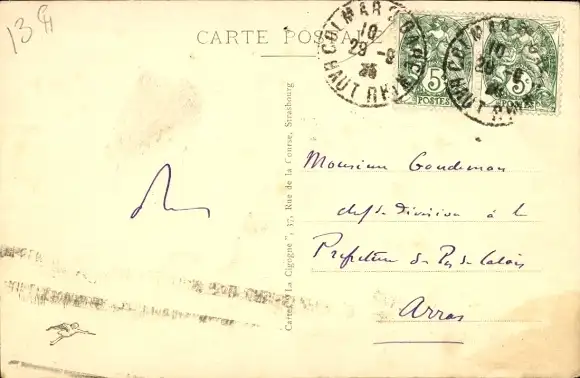 13
CARTE POSTALE
COLMAR GARE
10
29 -8
HAUT RHIN
COLMAR
10
29 -8
HAUT RHIN
5c
POSTES
5c
Cartes " La Cigogne ", 37, Rue de la Course, Strasbourg
Monsieur Goudemon
chef de division à la
Préfecture du Pas de Calais
Arras